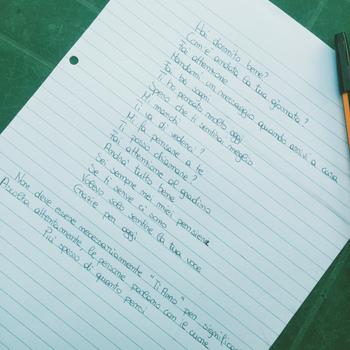 Hai dormito bene?
Com'è andata la tua giornata?
Fai attenzione
Mandami un messaggio quando arrivi a casa
Fa bei sogni
Ti ho pensato molto oggi
Spero che ti sentirai meglio
Mi manchi
Ti va di vederci?
Mi fa pensare a te
Ti posso chiamare?
Fai attenzione al gradino
Andrà tutto bene
Sei sempre nei miei pensieri
Se ti serve ci sono
Volevo solo sentire la tua voce
Grazie per oggi
Non deve essere necessariamente "Ti Amo" per significa
Ascolta attentamente, le persone parlano con il cuore
Più spesso di quanto pensi